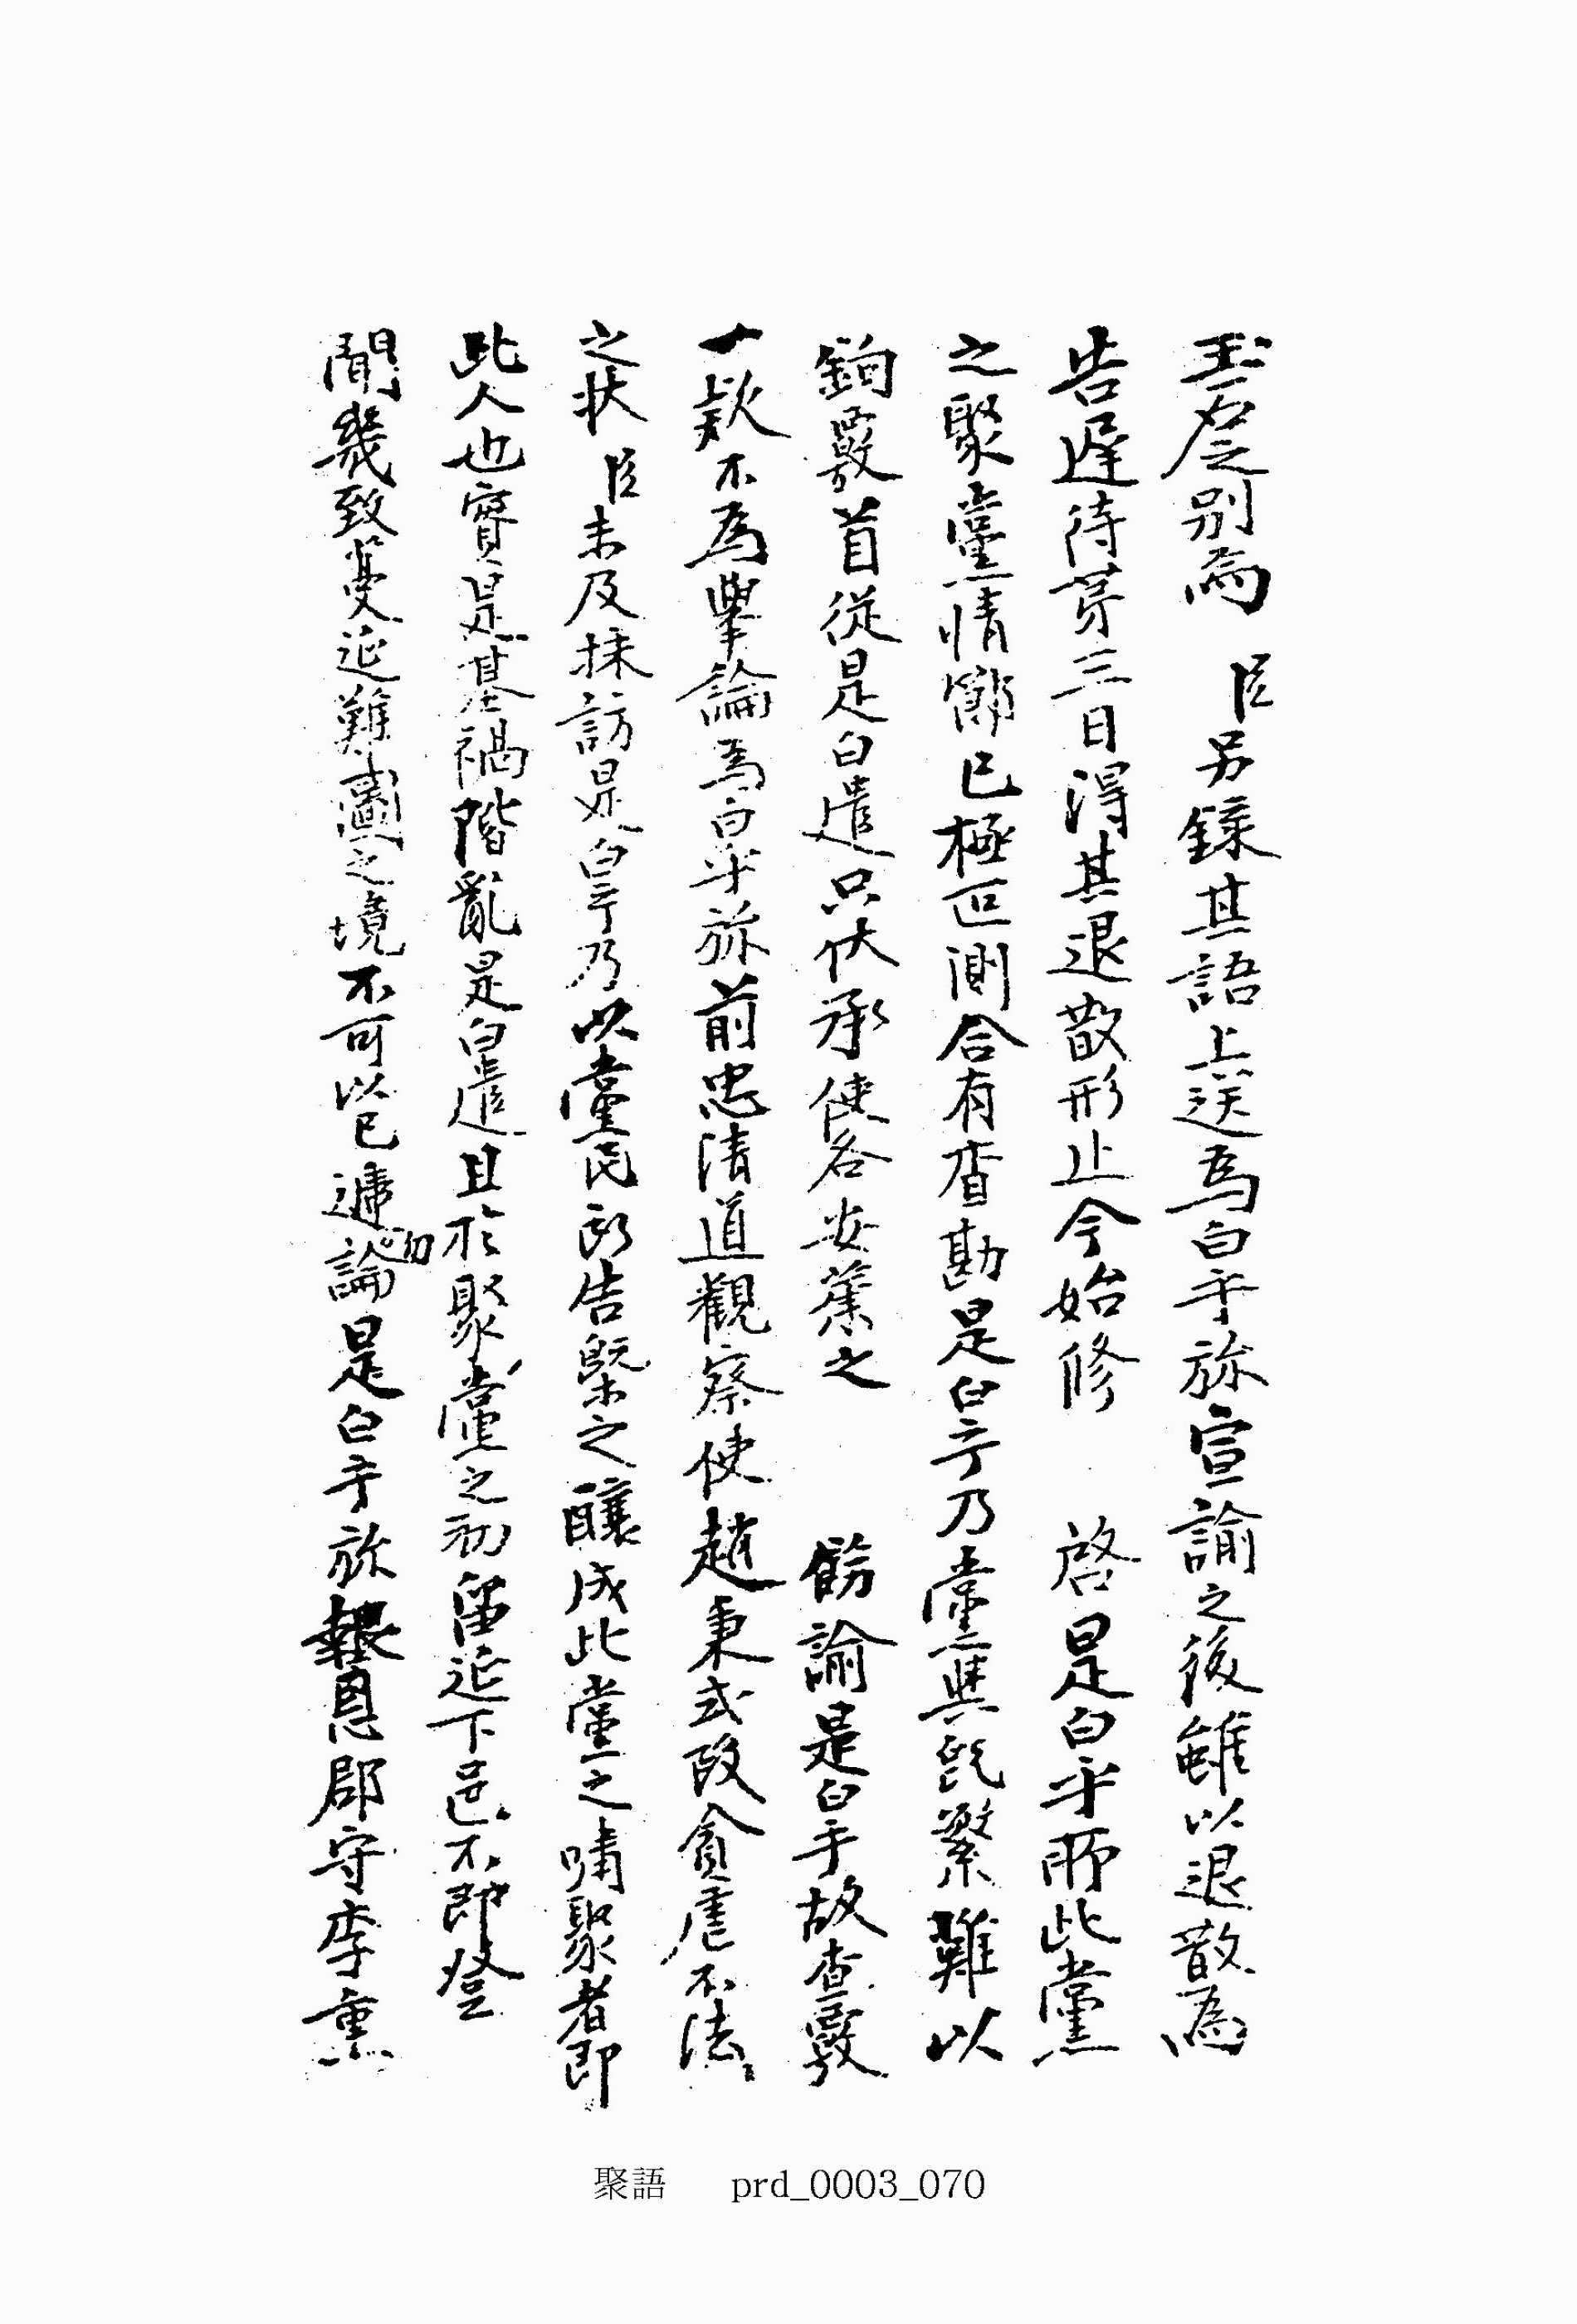 玉石之別而 臣另錄其語上送爲白乎旀宣諭之後雖以退散爲
告遲待芽三日得其退散形止今始修 啓是白乎所此黨
之聚黨情節已極叵測合有查勘是白乎乃黨與旣繁難以
鉤覈首從是白遣只伏承使各安業之 飭諭是白乎故查覈
一款不爲擧論爲白乎旀前忠清道觀察使趙秉式段貪虐不法
之狀 臣未及採訪是白乎乃以黨民所告槩之釀成此黨之嘯聚者即
此人也實是基禍階亂是白遣且於聚黨之初留延下邑不即登
聞幾致蔓延難圖之境不可以已遞勿論是白乎旀報恩郡守李重
聚語 prd_0003_070